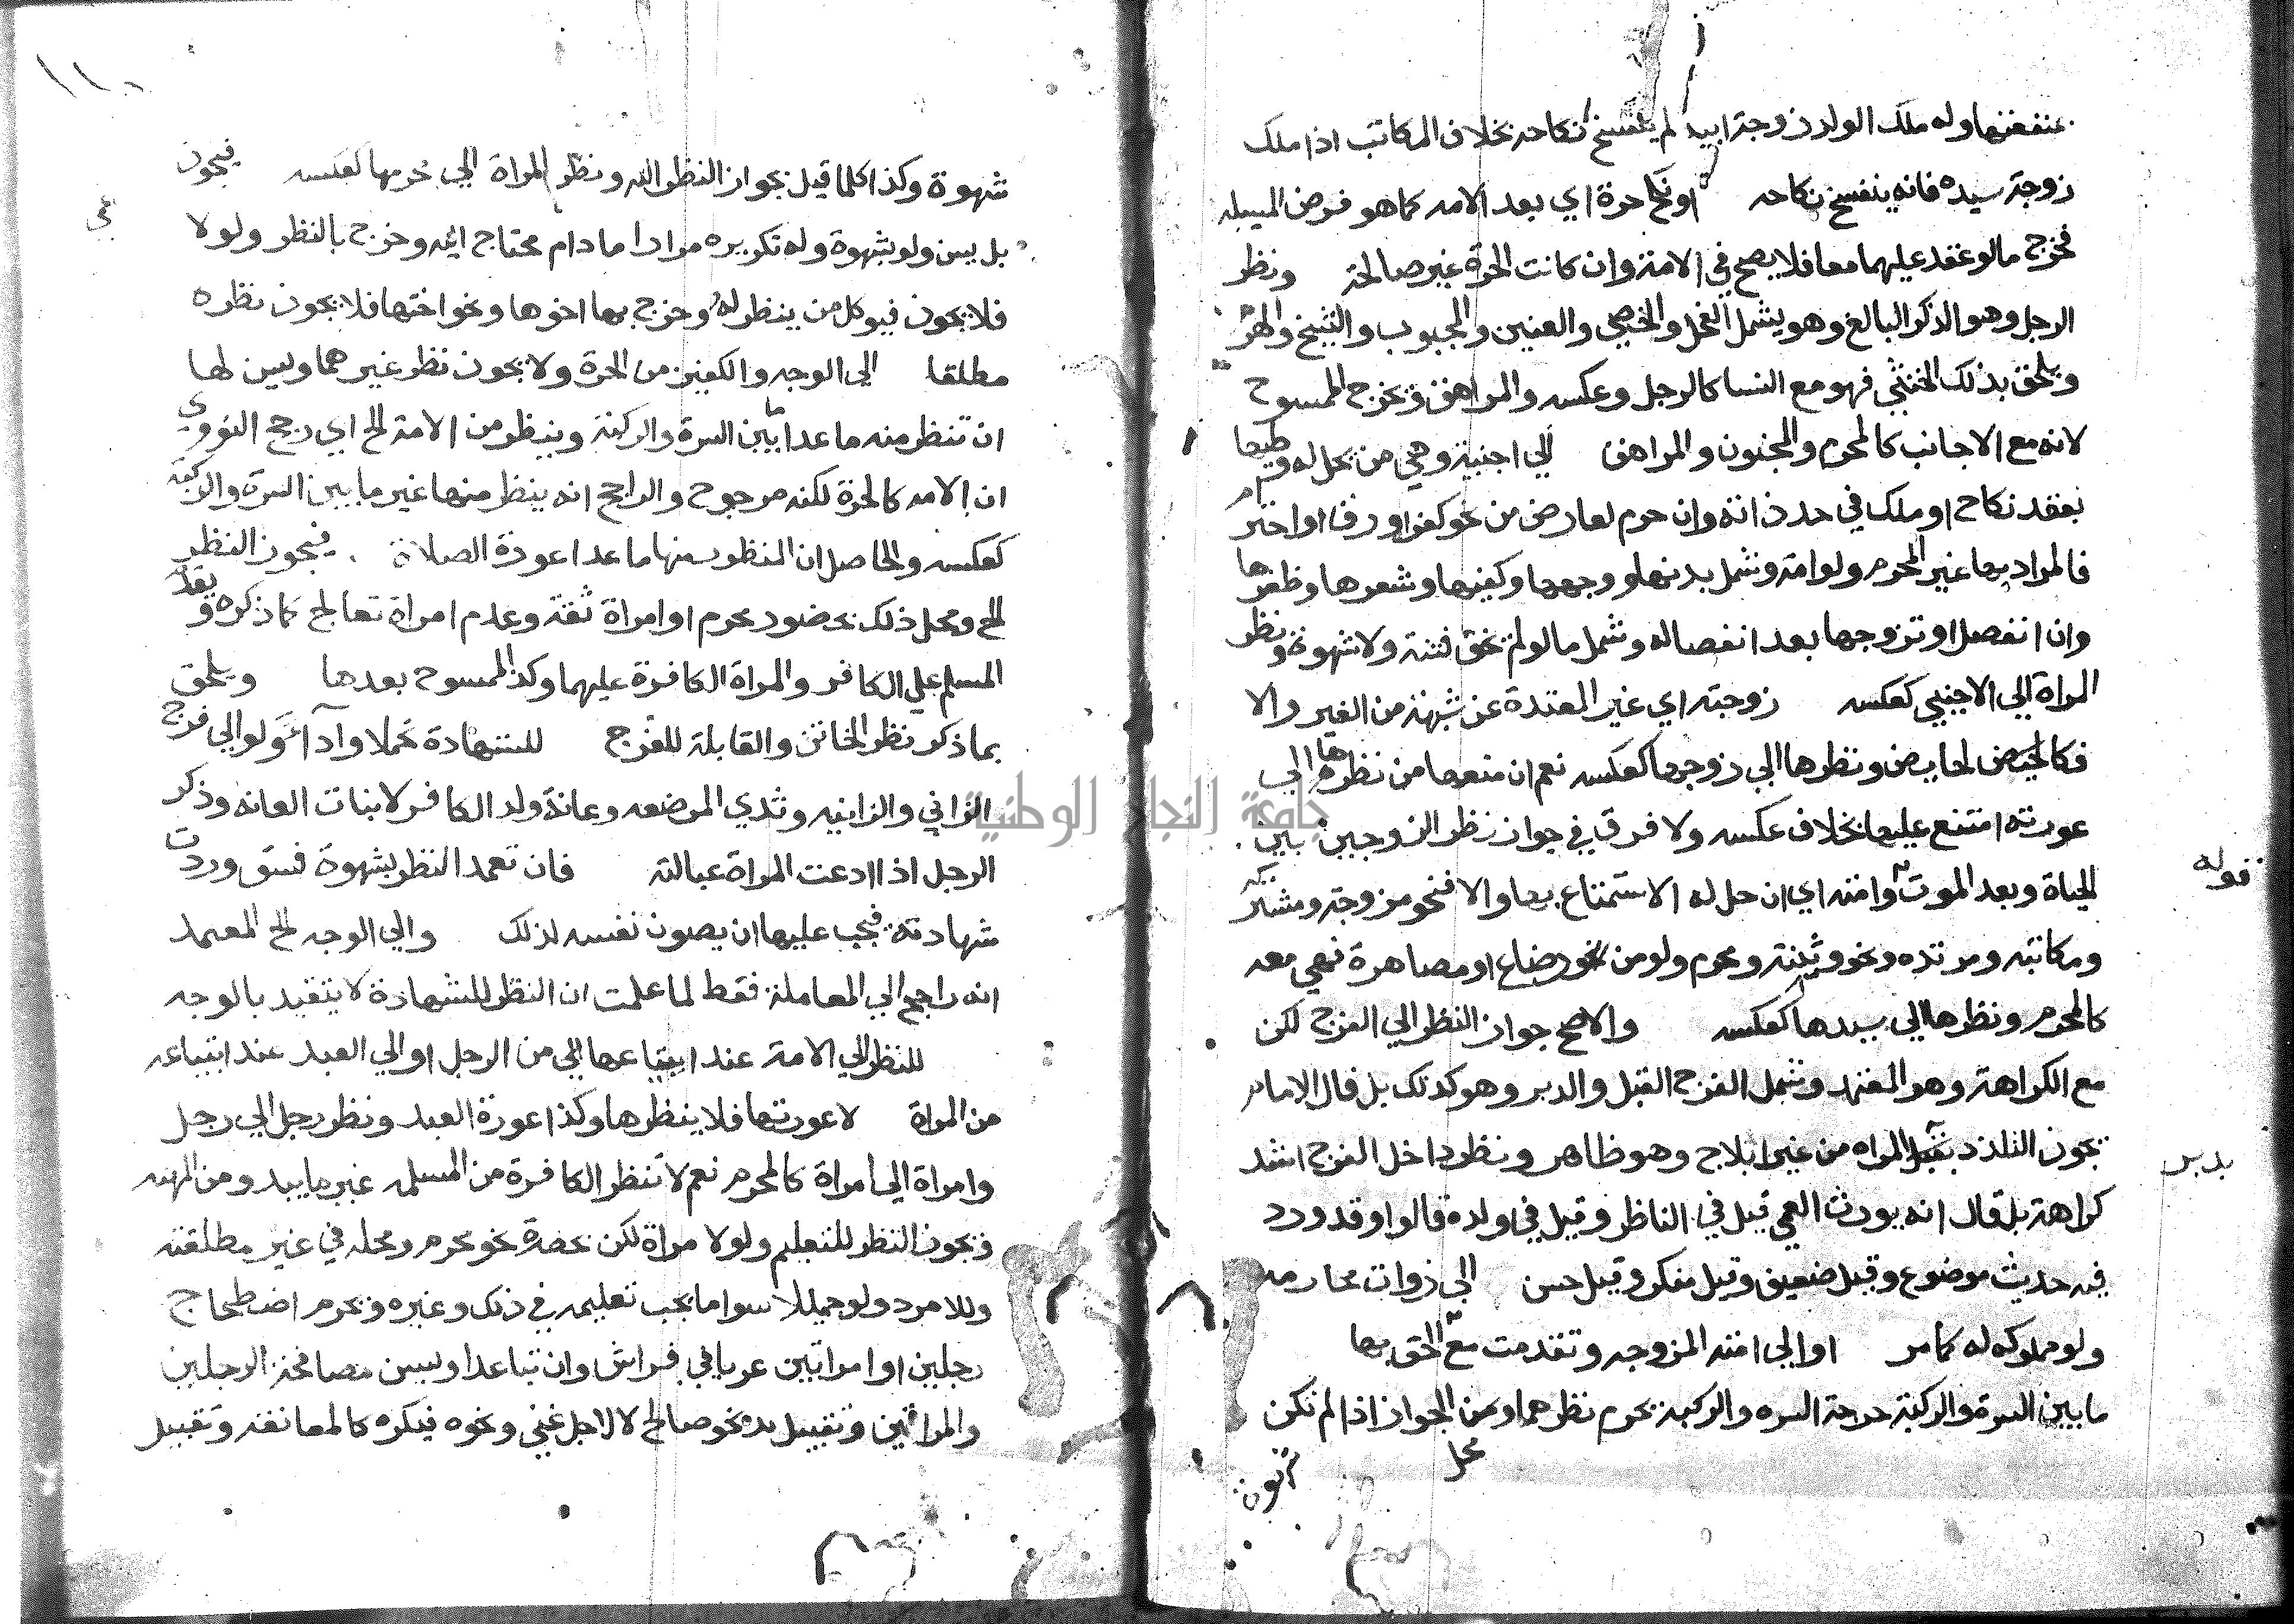 بمنفعتها وله ملك الولد زوجة ابيه لم ينفسخ نكاحه بخلاف المكاتب اذا ملك
زوجة سيده فانه ينفسخ نكاحه او نكح حرة اي بعد الامه كما هو فرض المسيله
فخرج ما لو عقد عليهما معا فلا يصح في الامة وان كانت الحرة غير صالحة ونظر
الرجل وهو الذكر البالغ وهو يشمل الفحل والخصي والعنين والمجبوب والشيخ والهرم
ويلحق بذلك الخنثي فهو مع النسا كالرجل وعكسه والمراهق ويخرج الممسوح
لانه مع الاجانب كالمحرم والمجنون والمراهق الي اجنبية وهي من يحل له وطيها
بعقد نكاح او ملك في حد ذاته وان حرم لعارض من نحو كفر او رق او احترام
فالمراد بها غير المحرم ولو امة وشمل بدنها ووجهها وكفيها وشعرها وظفرها
وان انفصل او تزوجها بعد انفصاله وشمل ما لو لم تخف فتنة ولا شهوة ونظر
المراة الي الاجنبي كعكسه زوجته اي غير المعتدة عن شبهة من الغير والا
فكالحيض لحايض ونظرها الي زوجها كعكسه نعم ان منعها من نظرها الي
عورته امتنع عليها بخلاف عكسه ولا فرق في جواز نظر الزوجين بين
الحياة وبعد الموت وامته اي ان حل له الاستمتاع بها والا فنحو مزوجة ومشتركه
قوله
ومكاتبه ومرتده ونحو وثنية ومحرم ولو من نحو رضاع او مصاهرة فهي معه
كالمحرم ونظرها الي سيدها كعكسه والاصح جواز النظر الي الفرج لكن
مع الكراهة وهو المعتمد وشمل الفرج القبل والدبر وهو كذلك بل قال الامام
يجوز التلذذ بقبل المراه من غير ايلاج وهو ظاهر ونظر داخل الفرج اشد
بدبر
كراهة بل قال انه يورث العمي قيل في الناظر وقيل في ولده قالوا وقد ورد
فيه حديث موضوع وقيل ضعيف وقيل منكر وقيل حسن الي ذوات محارمه
ولو مملوكه له كما مر او الي امته المزوجه وتقدمت مع ما الحق بها
ما بين السرة والركبة حرحة السره والركبه يحرم نظرهما ومحل الجواز اذا لم تكن
محل
شهوة
١١٠
شهوة وكذا كلما قيل بجواز النظر اليه ونظر المراة الي محرمها كعكسه فيجوز
بل يسن ولو بشهوة وله تكريره مرارا ما دام محتاج اليه وخرج بالنظر ولو لا
فلا يجوز فيوكل من ينظر له وخرج بها اخوها ونحو اختها فلا يجوز نظره
مطلقا الي الوجه والكفين من الحرة ولا يجوز نظر غيرهما وليس لها
ان تنظر منه ما عدا ما بين السرة والركبة وينظر من الامة الخ اي رجح النووي
ان الامه كالحرة لكنه مرجوح والراجح انه ينظر منها غير ما بين السرة والركبة
كعكسه والحاصل ان المنظور منها ما عدا عورة الصلاة فيجوز النظر
الخ ومحل ذلك بحضور محرم او امراة ثقة وعدم امراة تعالج كما ذكره ويقدم
المسلم علي الكافر والمراة الكافرة عليهما وكذا الممسوح بعدها ويلحق
بما ذكر نظر الخاتن والقابلة للفرج للشهادة تحملا وآدآء ولو الي فرج
الزاني والزانيه وثدي المرضعه وعانة ولد الكافر لانبات العانه وذكر
الرجل اذا ادعت المراة عبالته فان تعمد النظر بشهوة فسق وردت
شهادته فيجب عليها ان يصون نفسه لذلك والي الوجه الخ المعتمد
انه راجع الي المعاملة فقط لما علمت ان النظر للشهادة لا يتقيد بالوجه
للنظر الي الامة عند ابتياعها الي من الرجل او الي العبد عند ابتياعه
من المراة لا عورتها فلا ينظرها وكذا عورة العبد ونظر رجل الي رجل
وامراة الي امراة كالمحرم نعم لا تنظر الكافرة من المسلمه غير ما يبدو من المهنه
ويجوز النظر للتعليم ولو لامراة لكن بحضرة نحو محرم ومحله في غير مطلقته
وللامرد ولو جميلا سوا ما يجب تعليمه في ذلك وغيره ويحرم اضطجاع
رجلين او امراتين عريا في فراش وان تباعدا ويسن مصافحة الرجلين
والمراتين وتقبيل يد نحو صالح لا لاجل غني ونحوه فيكره كالمعانقه وتقبيل
جامعة النجاح الوطنية